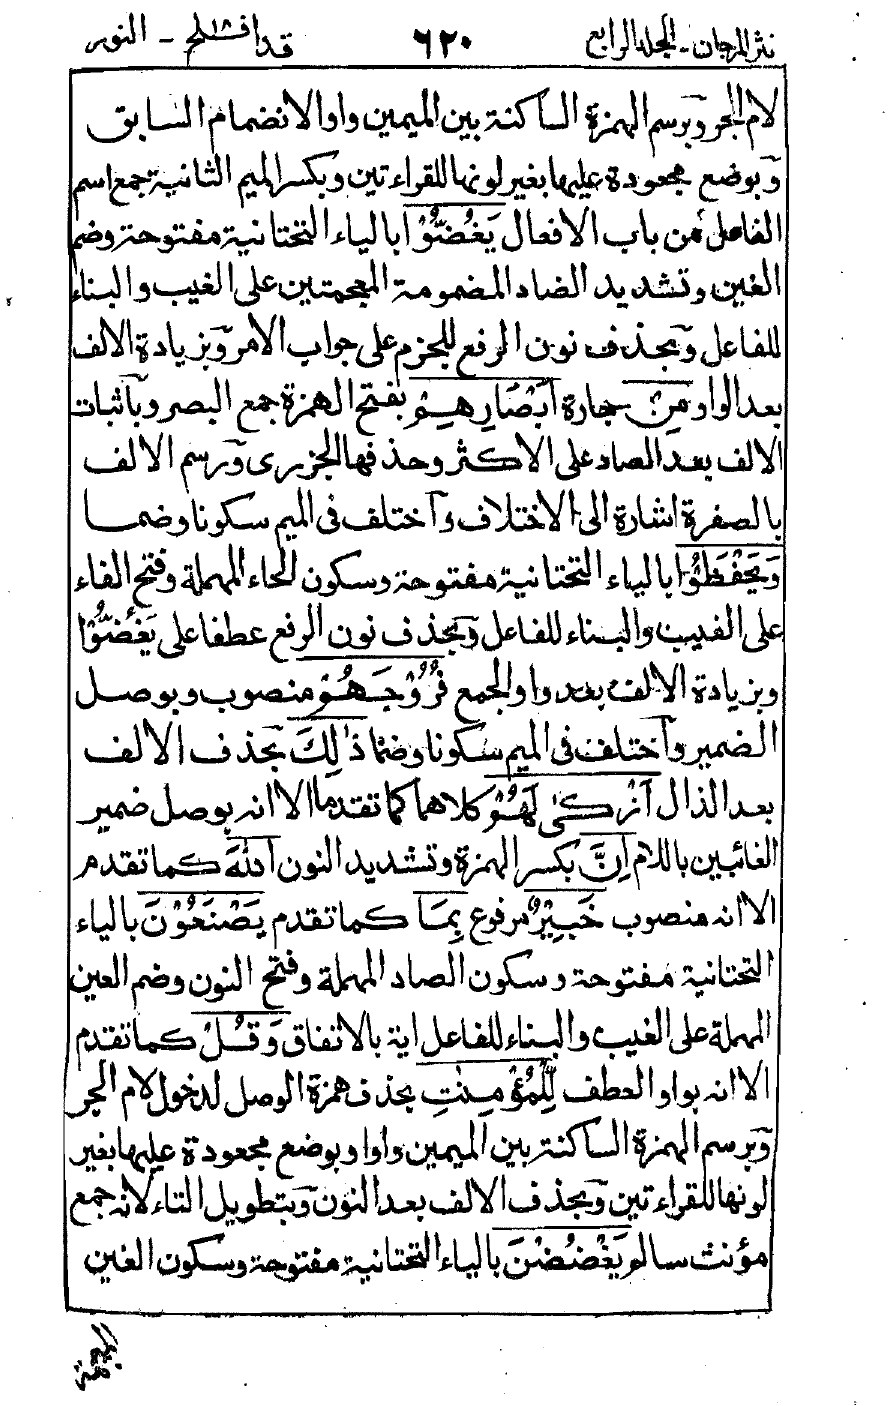 نثر المرجان - الجلد الرابع ٦٢٠ قد افلح ١٨ - النور
لام الجر وبرسم الهمزة الساكنة بين الميمين واوا لانضمام السابق
وبوضع مجعودة عليها بغير لونها للقراءتين وبكسر الميم الثانية جمع اسم
الفاعل من باب الافعال يَغُضُّوْا بالياء التحتانية مفتوحة وضم
الغين وتشديد الضاد المضمومة المعجمتين على الغيب والبناء
للفاعل وبحذف نون الرفع للجزم على جواب الامر وبزيادة الالف
بعد الواو مِنْ جارة اَبْصَارِهِمْ بفتح الهمزة جمع البصر وباثبات
الالف بعد الصاد على الاكثر وحذفها الجزرى ورسم الالف
بالصفرة اشارة الى الاختلاف واختلف فى الميم سكونا وضما
وَيَحْفَظُوْا بالياء التحتانية مفتوحة وسكون الحاء المهملة وفتح الفاء
على الغيب والبناء للفاعل وبحذف نون الرفع عطفا على يَغُضُّوْا
وبزيادة الالف بعد واو الجمع فُرُوْجَهُمْ منصوب وبوصل
الضمير واختلف فى الميم سكونا وضما ذٰلِكَ بحذف الالف
بعد الذال اَزْكٰى لَهُمْ كلاهما كما تقدما الا انه بوصل ضمير
الغائبين باللام اِنَّ بكسر الهمزة وتشديد النون اللّٰهَ كما تقدم
الا انه منصوب خَبِيْرٌ مرفوع بِمَا كما تقدم يَصْنَعُوْنَ بالياء
التحتانية مفتوحة وسكون الصاد المهملة وفتح النون وضم العين
المهملة على الغيب والبناء للفاعل اية بالاتفاق وَقُلْ كما تقدم
الا انه بواو العطف لِّلْمُؤْمِنٰتِ بحذف همزة الوصل لدخول لام الجر
وبرسم الهمزة الساكنة بين الميمين واوا وبوضع مجعودة عليها بغير
لونها للقراءتين وبحذف الالف بعد النون وبتطويل التاء لانه جمع
مؤنث سالم يَغْضُضْنَ بالياء التحتانية مفتوحة وسكون الغين